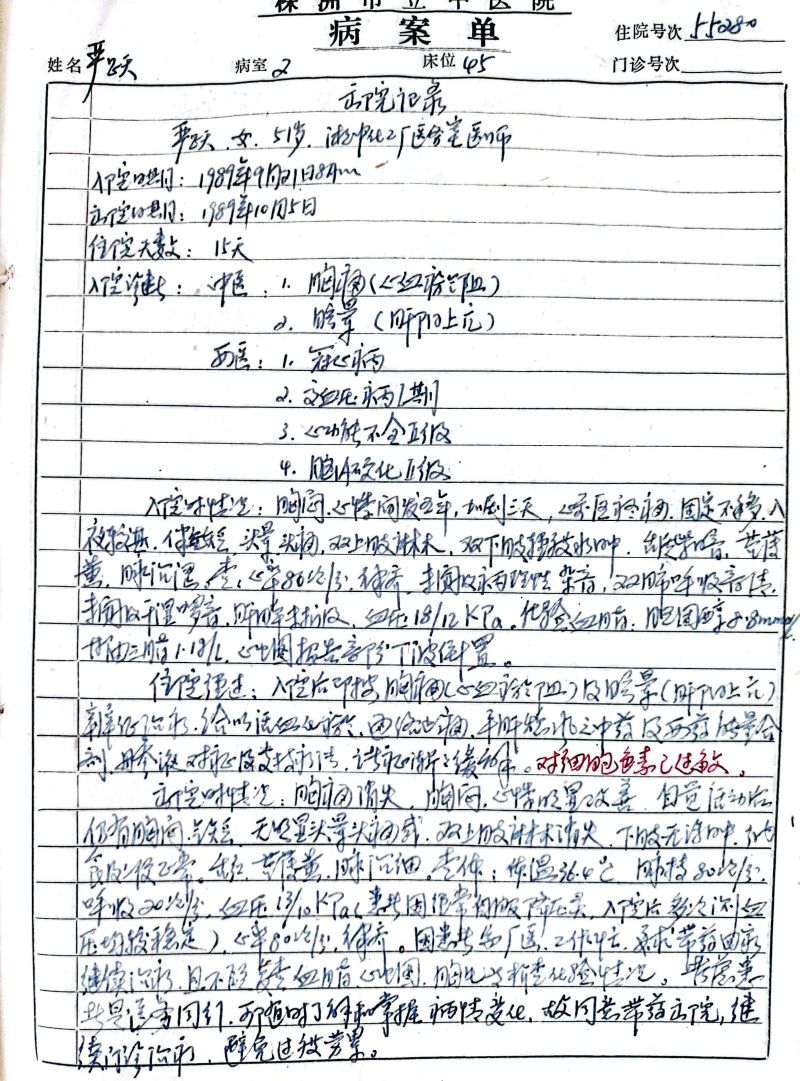 株洲市立中医院
病案单
住院号次 55280
姓名 严跃 病室 2 床位 45 门诊号次
出院记录
严跃、女、51岁、湘中化工厂医务室医师
入院日期：1989年9月21日8Am
出院日期：1989年10月5日
住院天数：15天
入院诊断：中医：1. 胸痛（心血瘀阻）
2. 眩晕（肝阳上亢）
西医：1. 冠心病
2. 高血压病Ⅰ期
3. 心功能不全Ⅱ级
4. 脑A硬化Ⅱ级
入院时情况：胸闷、心悸间发五年，加剧三天，心前区疼痛、固定不移，入
夜较甚，伴气短，头晕头痛，双上肢麻木，双下肢轻度水肿，舌质紫暗，苔薄
黄，脉沉涩，查：心率86次/分，律齐，未闻及病理性杂音，双肺呼吸音清，
未闻及干湿啰音，肝脾未扪及，血压18/12 KPa。化验血脂：胆固醇8.8mmol/L
甘油三脂1.18/L，心电图报告部分T波倒置。
住院经过：入院后即按胸痛（心血瘀阻）及眩晕（肝阳上亢）
辨证论治，给以活血化瘀，通络止痛，平肝熄风之中药及西药能量合
剂、丹参液对症及支持疗法，诸症渐之缓解。对细胞色素C过敏。
出院时情况：胸痛消失，胸闷、心悸明显改善，自觉活动后
仍有胸闷气短，无明显头晕头痛感，双上肢麻木消失，下肢无浮肿，纳
食及二便正常，舌红苔薄黄，脉沉细，查体：体温36.4℃ 脉搏80次/分，
呼吸20次/分，血压13/10KPa（患者因经常自服降压灵，入院后多次测血
压均较稳定），心率80次/分，律齐。因患者为厂医，工作忙，要求带药回家
继续治疗，且不愿复查血脂、心电图、胸片等检查化验情况。考虑患
者是医务同行，可随时了解和掌握病情变化，故同意带药出院，继
续门诊治疗，避免过度劳累。